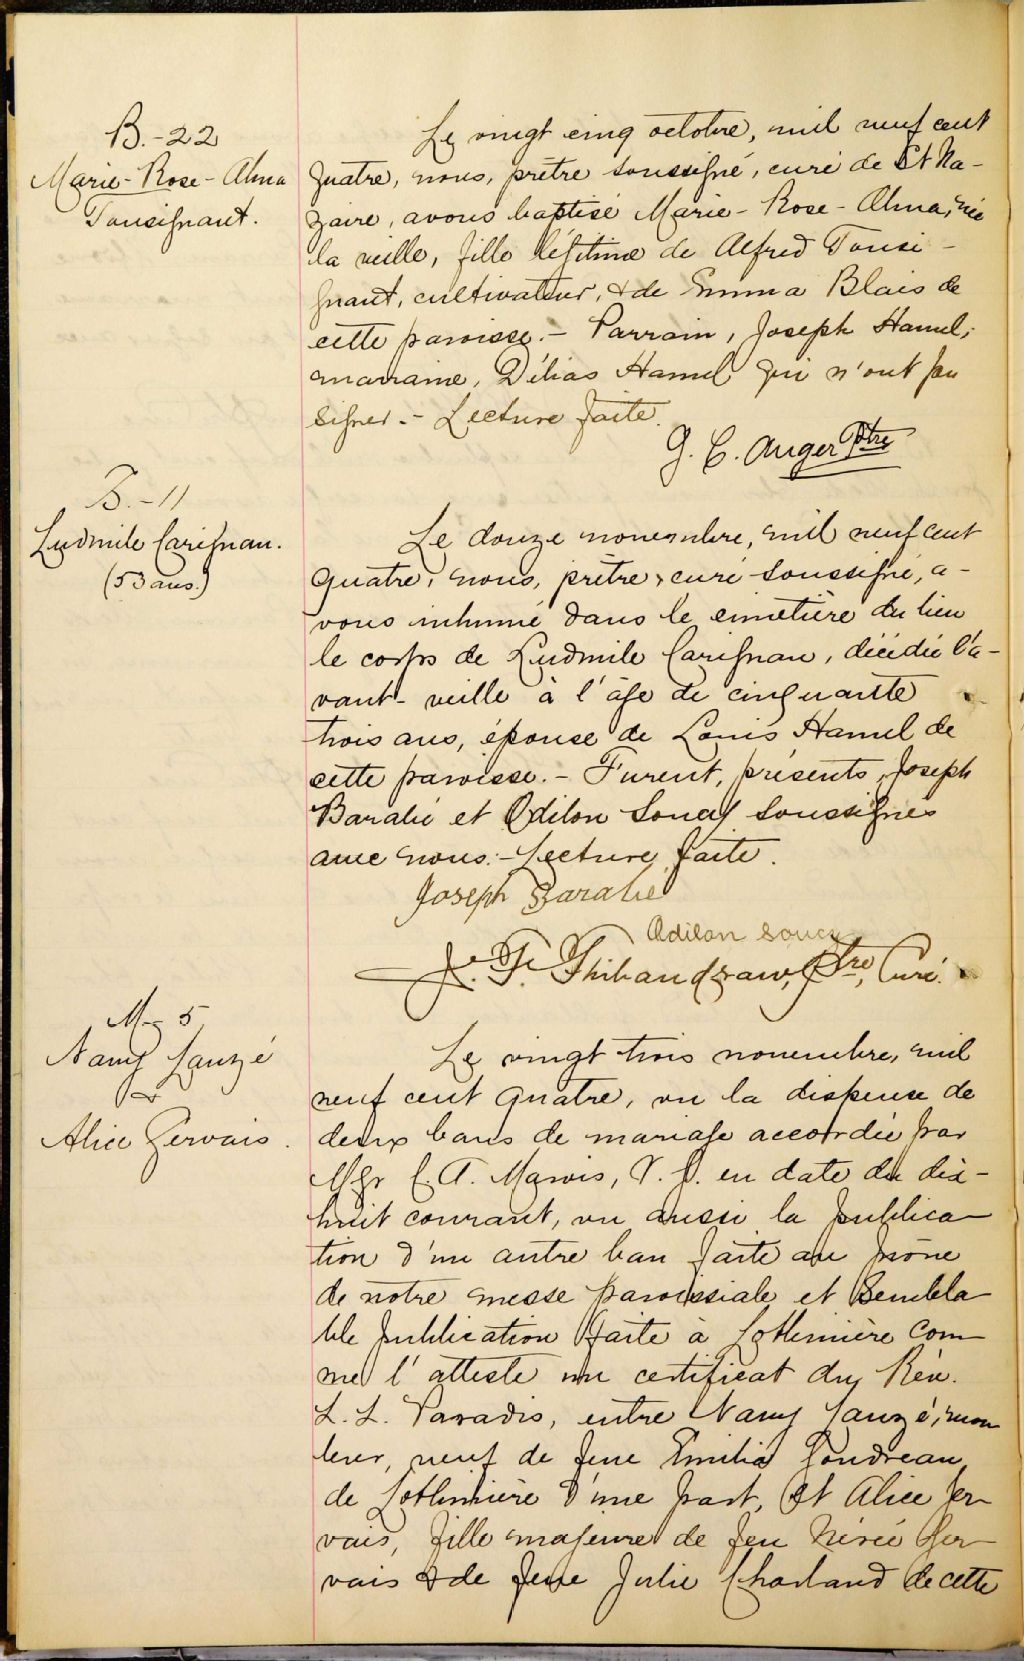 B.-22
Marie-Rose-Alma
Tousignant.
Le vingt cinq octobre, mil neuf cent
quatre, nous, prêtre soussigné, curé de St Na-
zaire, avons baptisé Marie-Rose-Alma, née
la veille, fille légitime de Alfred Tousi-
gnant, cultivateur, & de Emma Blais de
cette paroisse.- Parrain, Joseph Hamel;
marraine, Délias Hamel qui n'ont pu
signer.- Lecture faite.
G. C. Auger Ptre
S.-11
Ludmile Carignan.
(53 ans.)
Le douze novembre, mil neuf cent
quatre, nous, prêtre, curé soussigné, a-
vons inhumé dans le cimetière du lieu
le corps de Ludmile Carignan, décédée l'a-
vant-veille à l'âge de cinquante
trois ans, épouse de Louis Hamel de
cette paroisse.- Furent, présents, Joseph
Baralié et Odilon Soucy soussignés
avec nous.-Lecture faite.
Joseph Baralié
Odilon Soucy
J. F. Thibaudeau, Ptre, Curé.
M-5
Namy Lauzé
&
Alice Gervais.
Le vingt trois novembre, mil
neuf cent quatre, vu la dispense de
deux bans de mariage accordée par
Mgr C. A. Marois, V. G. en date du dix-
huit courant, vu aussi la publica-
tion d'un autre ban faite au prône
de notre messe paroissiale et sembla-
ble publication faite à Lotbinière com-
me l'atteste un certificat du Rév.
L. L. Paradis, entre Namy Lauzé,
veuf de feue Emilia Goudreau,
de Lotbinière d'une part, et Alice Ger-
vais, fille majeure de feu Nérée Ger-
vais & de feue Julie Charland de cette